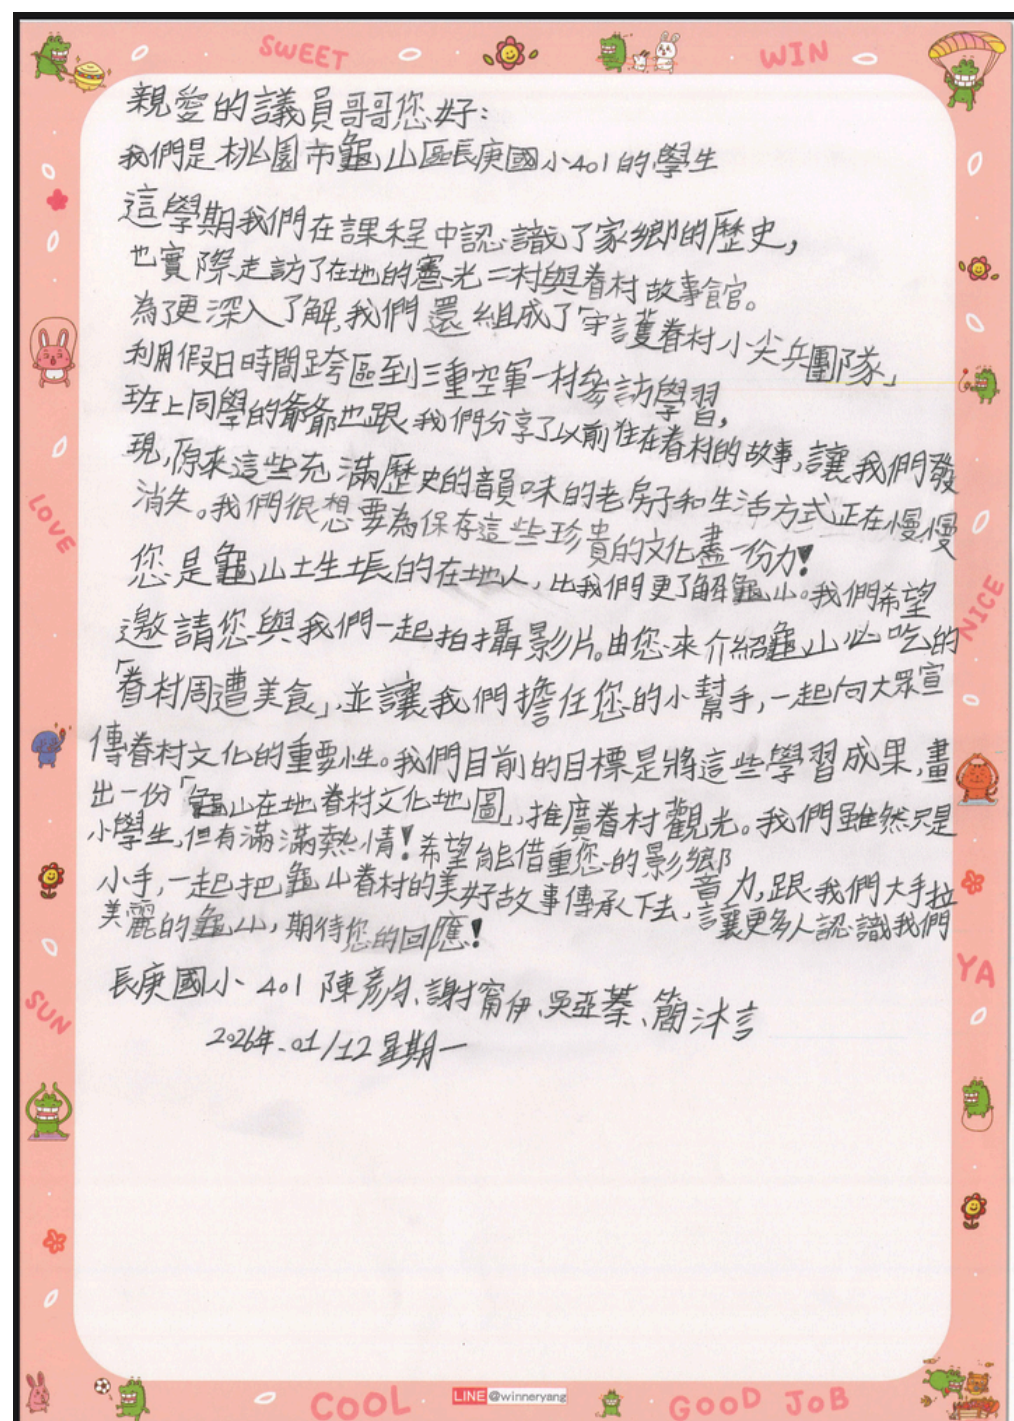 SWEET
WIN
親愛的議員哥哥您好：
我們是桃園市龜山區長庚國小401的學生
這學期我們在課程中認識了家鄉的歷史，
也實際走訪了在地的憲光二村與眷村故事館。
為了更深入了解，我們還組成了「守護眷村小尖兵團隊」
利用假日時間跨區到三重空軍一村參訪學習，
班上同學的爺爺也跟我們分享了以前住在眷村的故事，讓我們發
現，原來這些充滿歷史的韻味的老房子和生活方式正在慢慢
消失。我們很想要為保存這些珍貴的文化盡一份力！
您是龜山土生土長的在地人，比我們更了解龜山。我們希望
邀請您與我們一起拍攝影片。由您來介紹龜山必吃的
「眷村周遭美食」，並讓我們擔任您的小幫手，一起向大眾宣
傳眷村文化的重要性。我們目前的目標是將這些學習成果，畫
出一份「龜山在地眷村文化地圖」，推廣眷村觀光。我們雖然只是
小學生，但有滿滿熱情！希望能借重您的影響力，跟我們大手拉
小手，一起把龜山眷村的美好故事傳承下去，讓更多人認識我們
美麗的龜山，期待您的回應！
長庚國小 401 陳彥均、謝甯伊、吳亞蓁、簡沐言
2026年.01/12星期一
LOVE
NICE
SUN
YA
COOL
LINE @winneryang
GOOD JOB